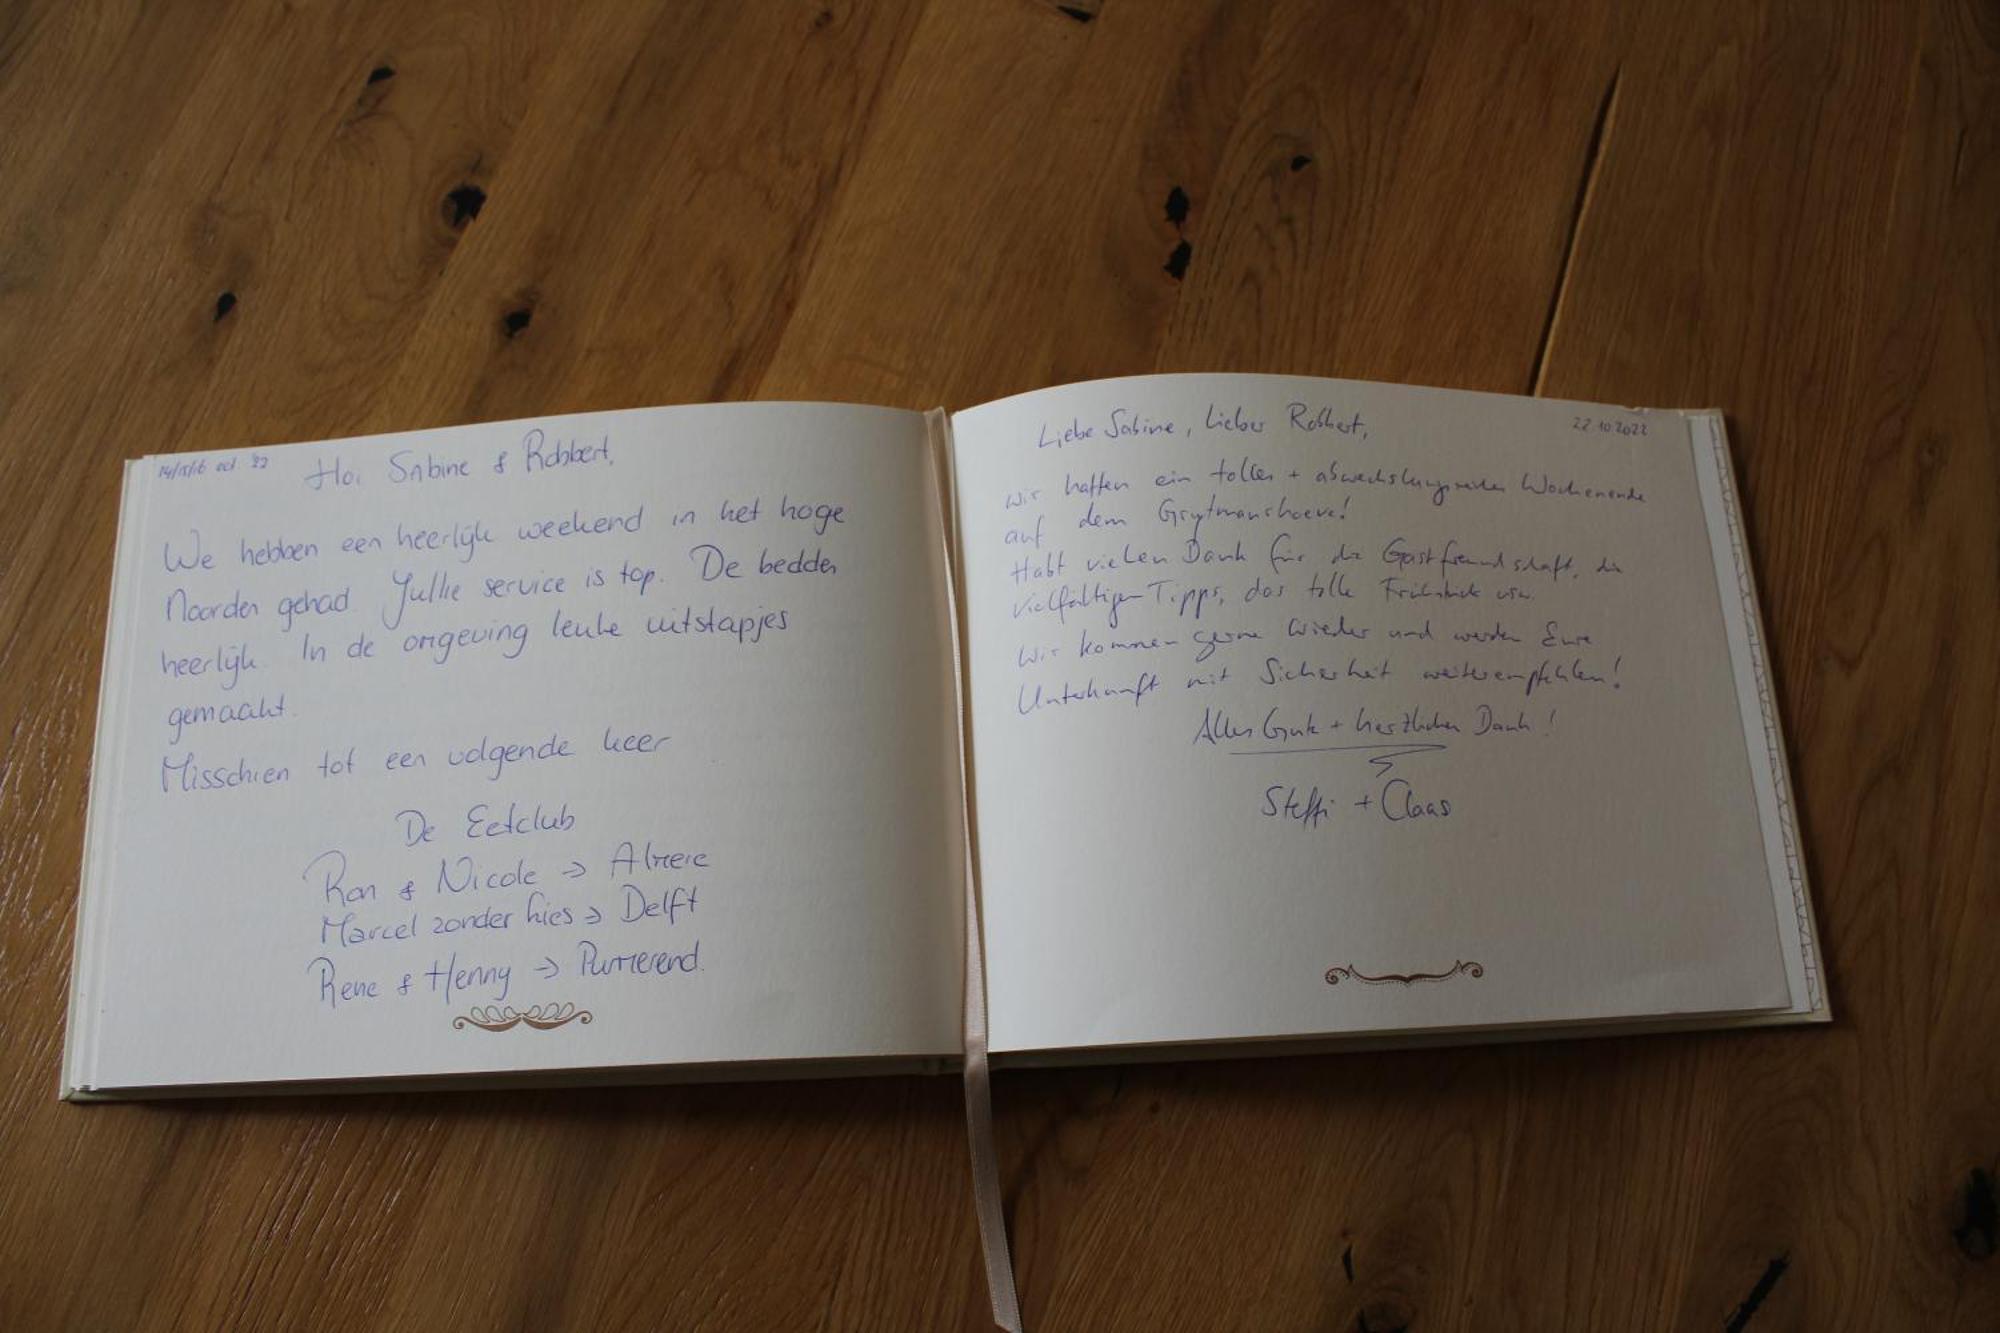 14/15/16 oct. '22
Hoi Sabine & Robbert,
We hebben een heerlijk weekend in het hoge
Noorden gehad. Jullie service is top. De bedden
heerlijk. In de omgeving leuke uitstapjes
gemaakt.
Misschien tot een volgende keer
De Eetclub
Ron & Nicole → Almere
Marcel zonder hies → Delft
Rene & Henny → Purmerend.
22.10.2022
Liebe Sabine, Lieber Robbert,
wir hatten ein tolles + abwechslungsreiches Wochenende
auf dem Gruytmanshoeve!
Habt vielen Dank für die Gastfreundschaft, die
vielfältigen Tipps, das tolle Frühstück usw.
Wir kommen gerne wieder und werden Eure
Unterkunft mit Sicherheit weiterempfehlen!
Alles Gute + herzlichen Dank!
Steffi + Claas